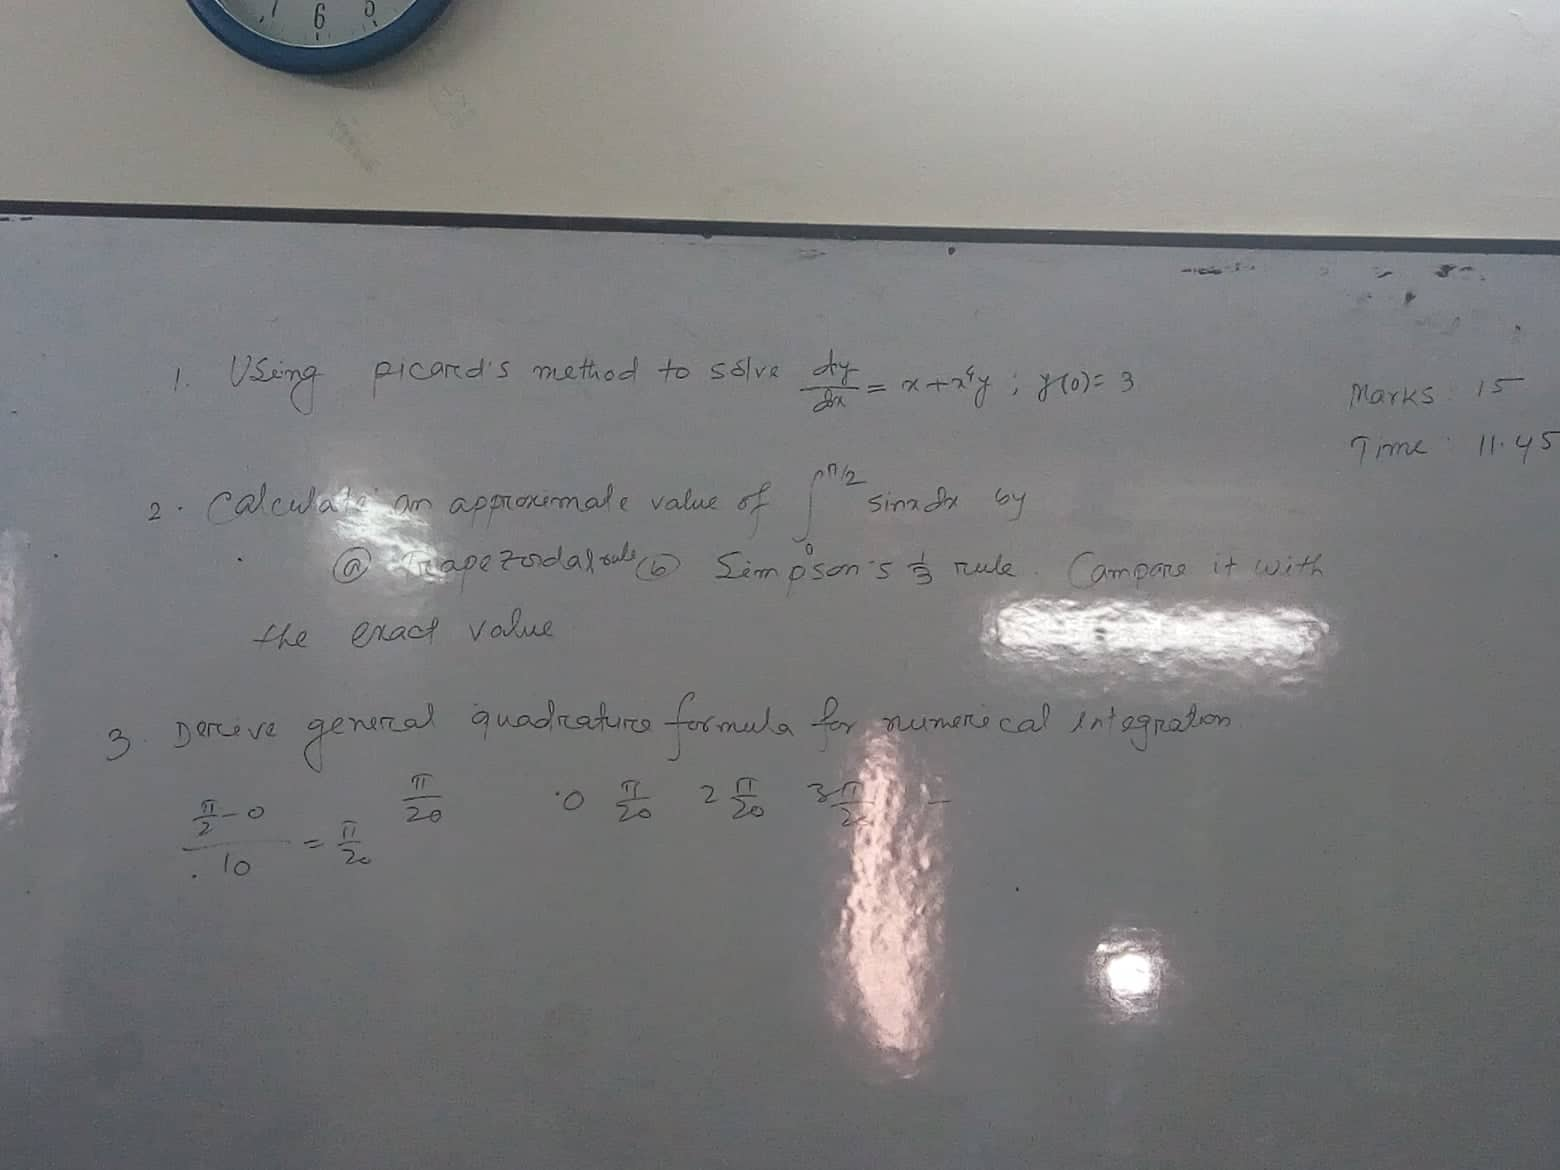 7 6 5
1. Using picard's method to solve dy/dx = x+x⁴y ; y(0)= 3
Marks : 15
Time : 11.45
2. Calculate an approximate value of ∫₀^π/2 sinx dx by
(a) Trapezoidal rule (b) Simpson's 1/3 rule. Compare it with
the exact value
3. Derive general quadrature formula for numerical integration.
(π/2 - 0)/10 = π/20 π/20 0 π/20 2π/20 3π/20 -